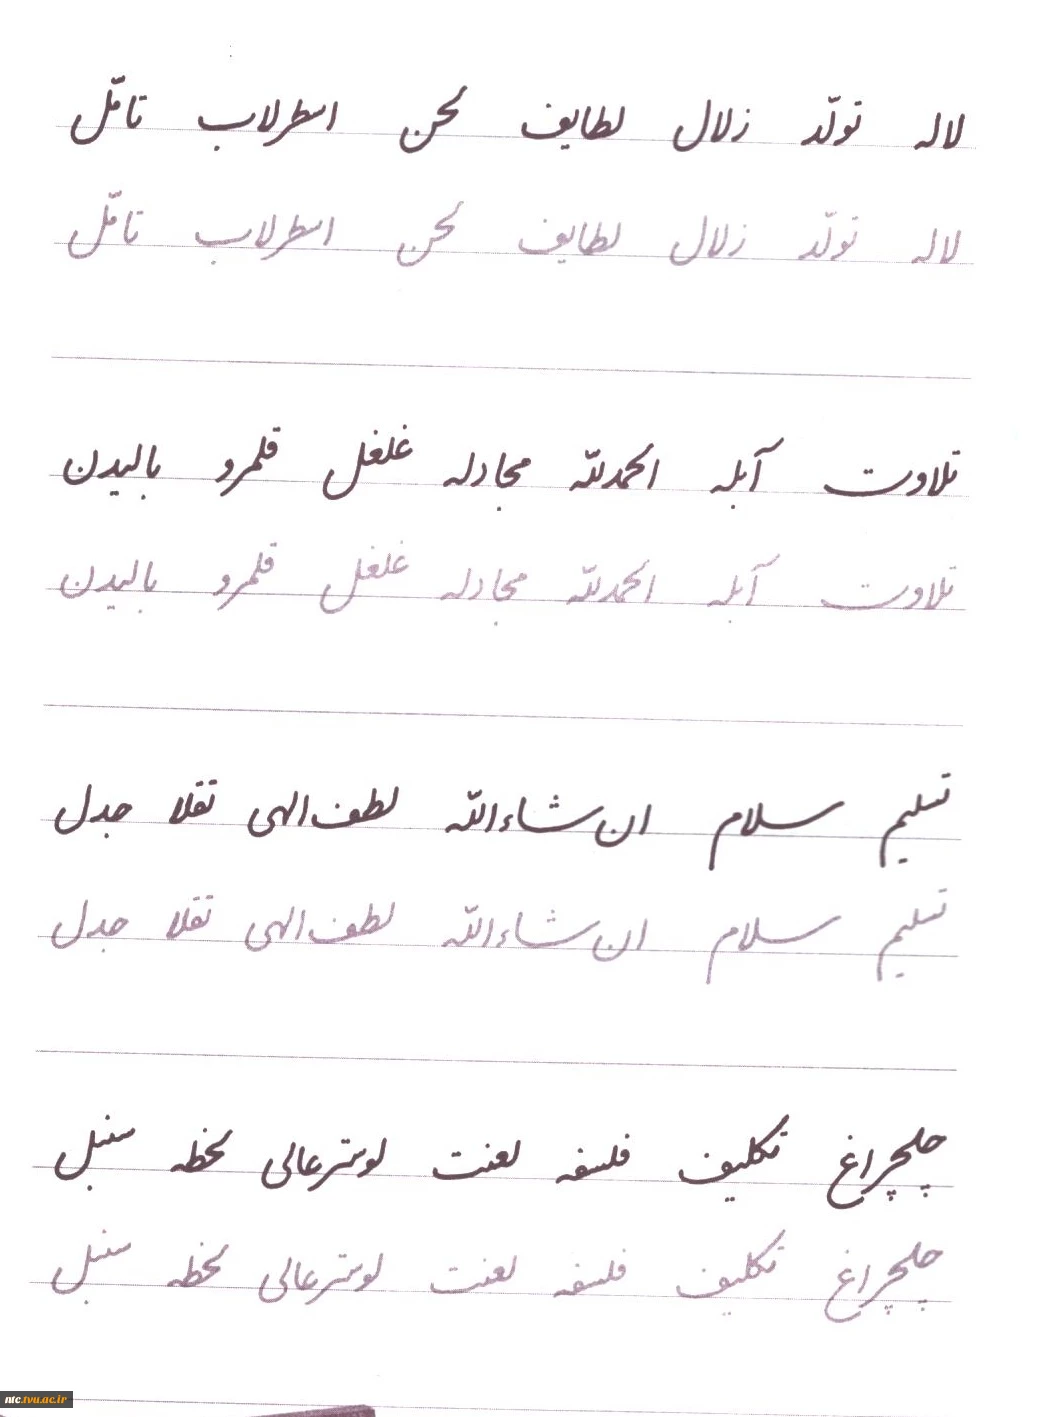 لاله تولّد زلال لطایف لحن اسطرلاب تامّل
لاله تولّد زلال لطایف لحن اسطرلاب تامّل
تلاوت آبله الحمدللّه مجادله غلغل قلمرو بالیدن
تلاوت آبله الحمدللّه مجادله غلغل قلمرو بالیدن
تسلیم سلام ان‌شاءاللّه لطف‌الهی تقلا جدل
تسلیم سلام ان‌شاءاللّه لطف‌الهی تقلا جدل
چلچراغ تکلیف فلسفه لعنت لوسترعالی لحظه سنبل
چلچراغ تکلیف فلسفه لعنت لوسترعالی لحظه سنبل
ntc.tvu.ac.ir